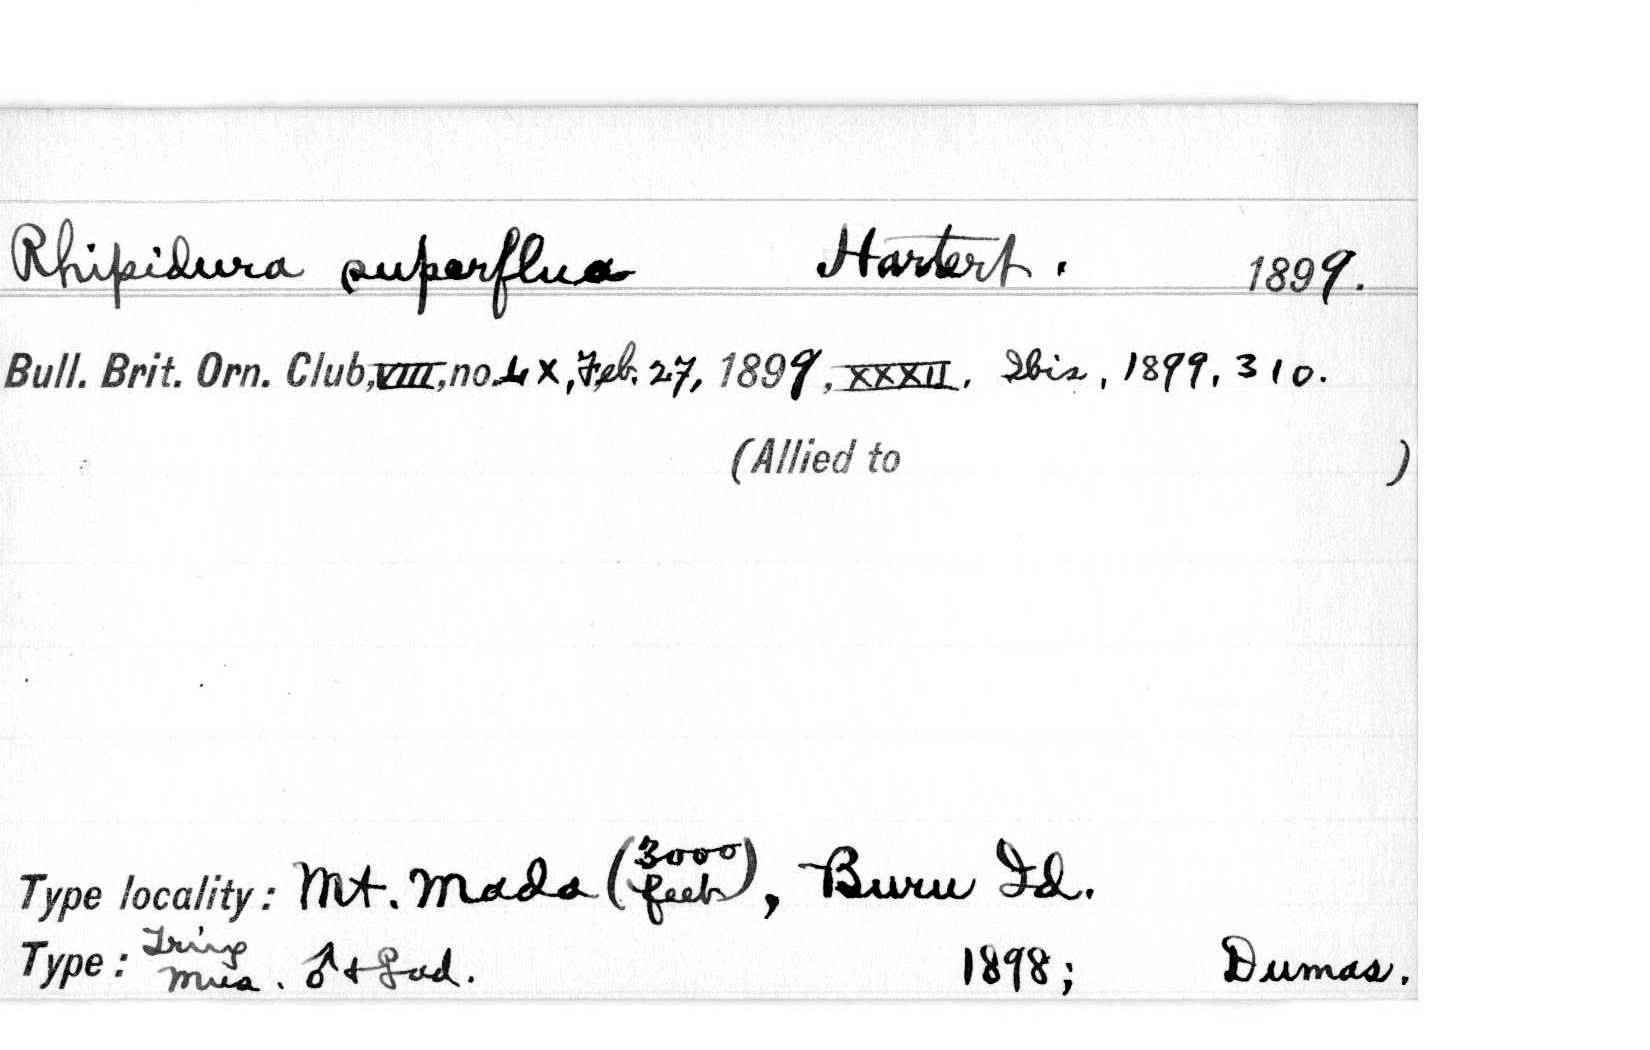 Rhipidura superflua Hartert. 1899.
Bull. Brit. Orn. Club, VIII, no. LX, Feb. 27, 1899, XXXII. Ibis, 1899, 310.
(Allied to )
Type locality: Mt. Mada (3000 feet), Buru Id.
Type: Tring Mus. ♂ + ♀ ad. 1898; Dumas.